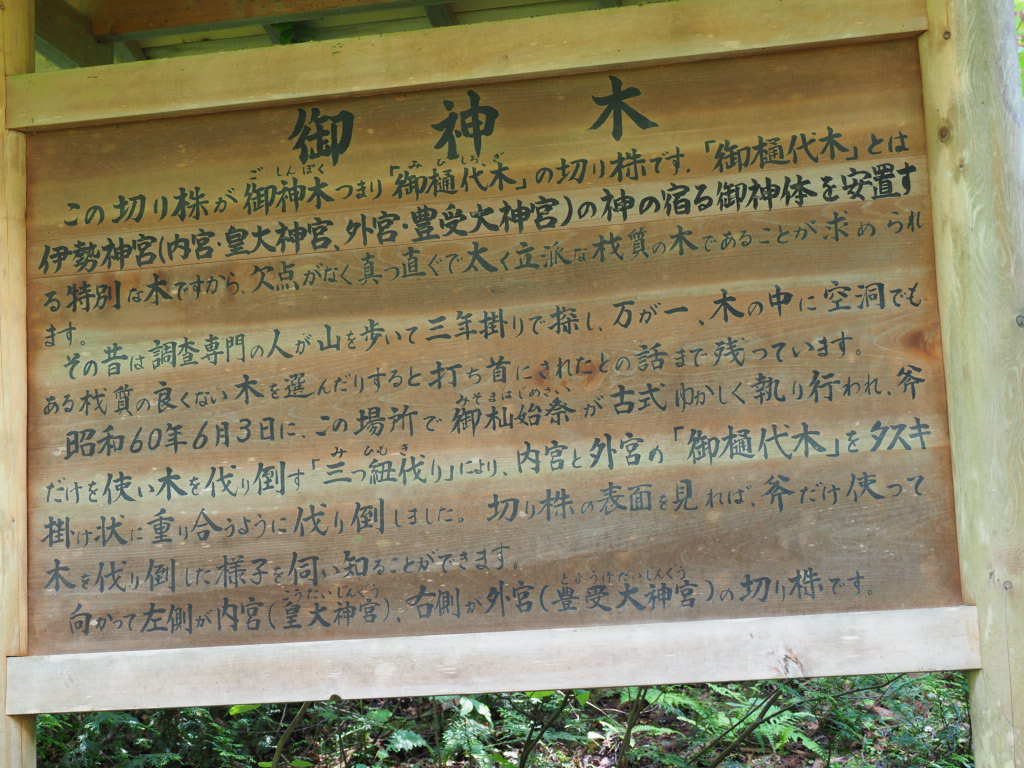 御神木
この切り株が御神木つまり「御樋代木」の切り株です。「御樋代木」とは
伊勢神宮(内宮・皇大神宮、外宮・豊受大神宮)の神の宿る御神体を安置す
る特別な木ですから、欠点がなく真っ直ぐで太く立派な材質の木であることが、求められ
ます。
その昔は調査専門の人が山を歩いて三年掛りで探し、万が一、木の中に空洞でも
ある材質の良くない木を選んだりすると打ち首にされたとの話まで残っています。
昭和60年6月3日に、この場所で御杣始祭が古式ゆかしく執り行われ、斧
だけを使い木を伐り倒す「三つ紐伐り」により、内宮と外宮の「御樋代木」をタスキ
掛け状に重り合うように伐り倒しました。切り株の表面を見れば、斧だけ使って
木を伐り倒した様子を伺い知ることができます。
向かって左側が内宮(皇大神宮)、右側が外宮(豊受大神宮)の切り株です。